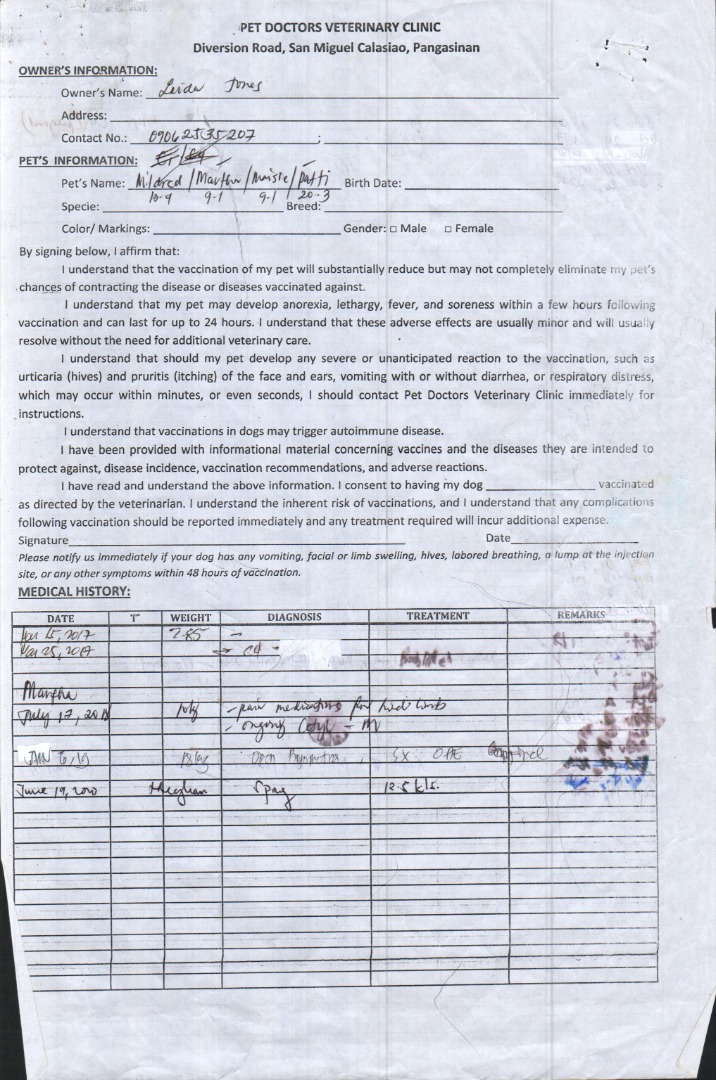 PET DOCTORS VETERINARY CLINIC
Diversion Road, San Miguel Calasiao, Pangasinan
OWNER'S INFORMATION:
Owner's Name: Leida Jones
Address:
Contact No.: 09062535207 ;
PET'S INFORMATION:
Pet's Name: Mildred / Martha / Maisie / Patti Birth Date:
9-1 9-1 20-3
Specie: Breed:
Color/ Markings: Gender: □ Male □ Female
By signing below, I affirm that:
I understand that the vaccination of my pet will substantially reduce but may not completely eliminate my pet's
chances of contracting the disease or diseases vaccinated against.
I understand that my pet may develop anorexia, lethargy, fever, and soreness within a few hours following
vaccination and can last for up to 24 hours. I understand that these adverse effects are usually minor and will usually
resolve without the need for additional veterinary care.
I understand that should my pet develop any severe or unanticipated reaction to the vaccination, such as
urticaria (hives) and pruritis (itching) of the face and ears, vomiting with or without diarrhea, or respiratory distress,
which may occur within minutes, or even seconds, I should contact Pet Doctors Veterinary Clinic immediately for
instructions.
I understand that vaccinations in dogs may trigger autoimmune disease.
I have been provided with informational material concerning vaccines and the diseases they are intended to
protect against, disease incidence, vaccination recommendations, and adverse reactions.
I have read and understand the above information. I consent to having my dog vaccinated
as directed by the veterinarian. I understand the inherent risk of vaccinations, and I understand that any complications
following vaccination should be reported immediately and any treatment required will incur additional expense.
Signature Date
Please notify us immediately if your dog has any vomiting, facial or limb swelling, hives, labored breathing, a lump at the injection
site, or any other symptoms within 48 hours of vaccination.
MEDICAL HISTORY:
DATE T° WEIGHT DIAGNOSIS TREATMENT REMARKS
15, 2017
25, 2017
Martha
July 17, 2018 - pain medications for hind limb
- ongoing
Open Pyometra SX OHE
June 19, 2020 Meghan Spay 12.5 kls.